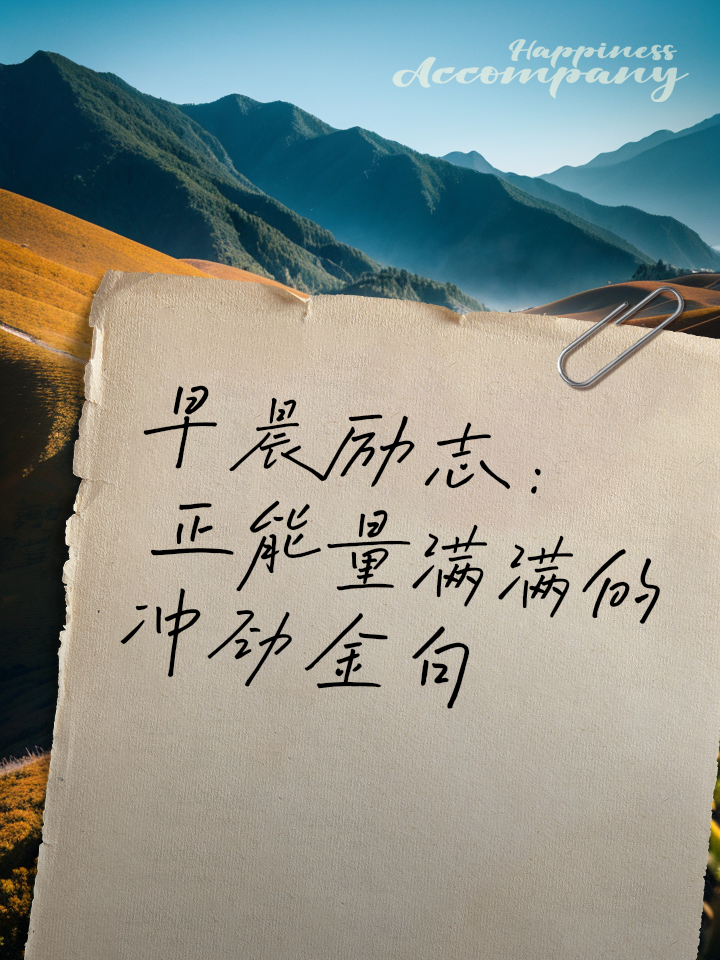 Happiness
Accompany
早晨励志：
正能量满满的
冲劲金句